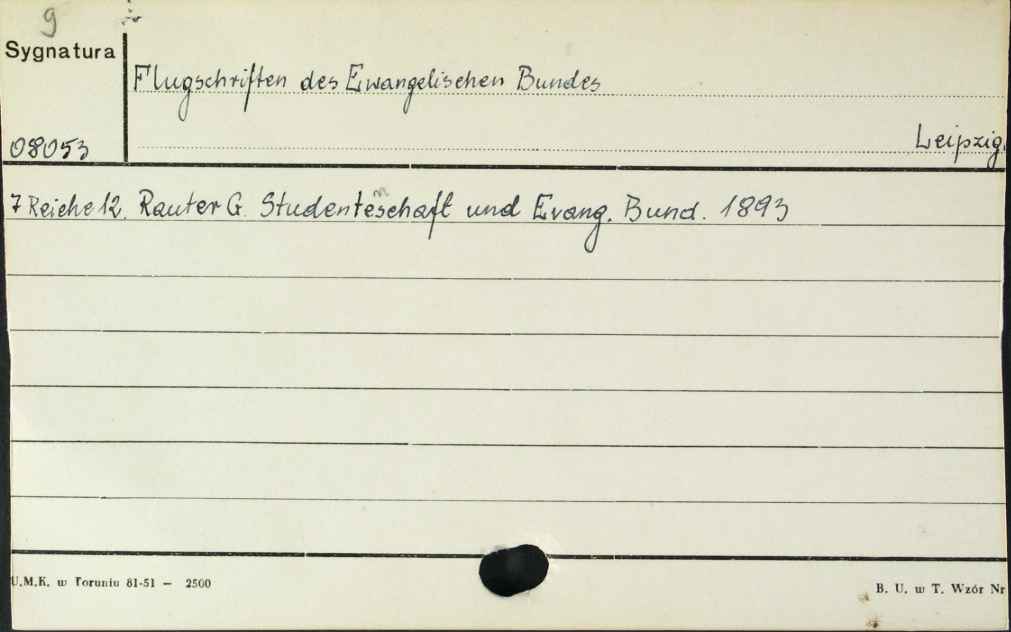 9
Sygnatura
Flugschriften des Ewangelischen Bundes
08053
Leipzig.
7 Reiche 12. Rauter G. Studentenschaft und Evang. Bund. 1893
U.M.K. w Toruniu 81-51 — 2500
B. U. w T. Wzór Nr